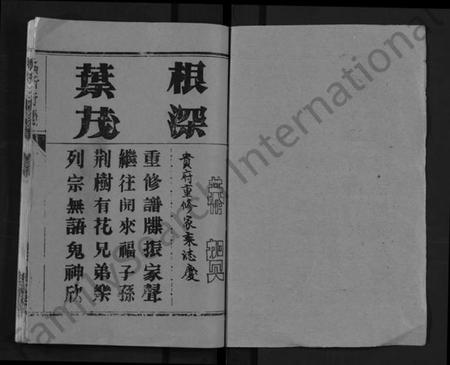 根深
葉茂
貴府重修家乘誌慶
重修譜牒振家聲
繼往開來福子孫
荆樹有花兄弟樂
列宗無語鬼神欣
FamilySearch International